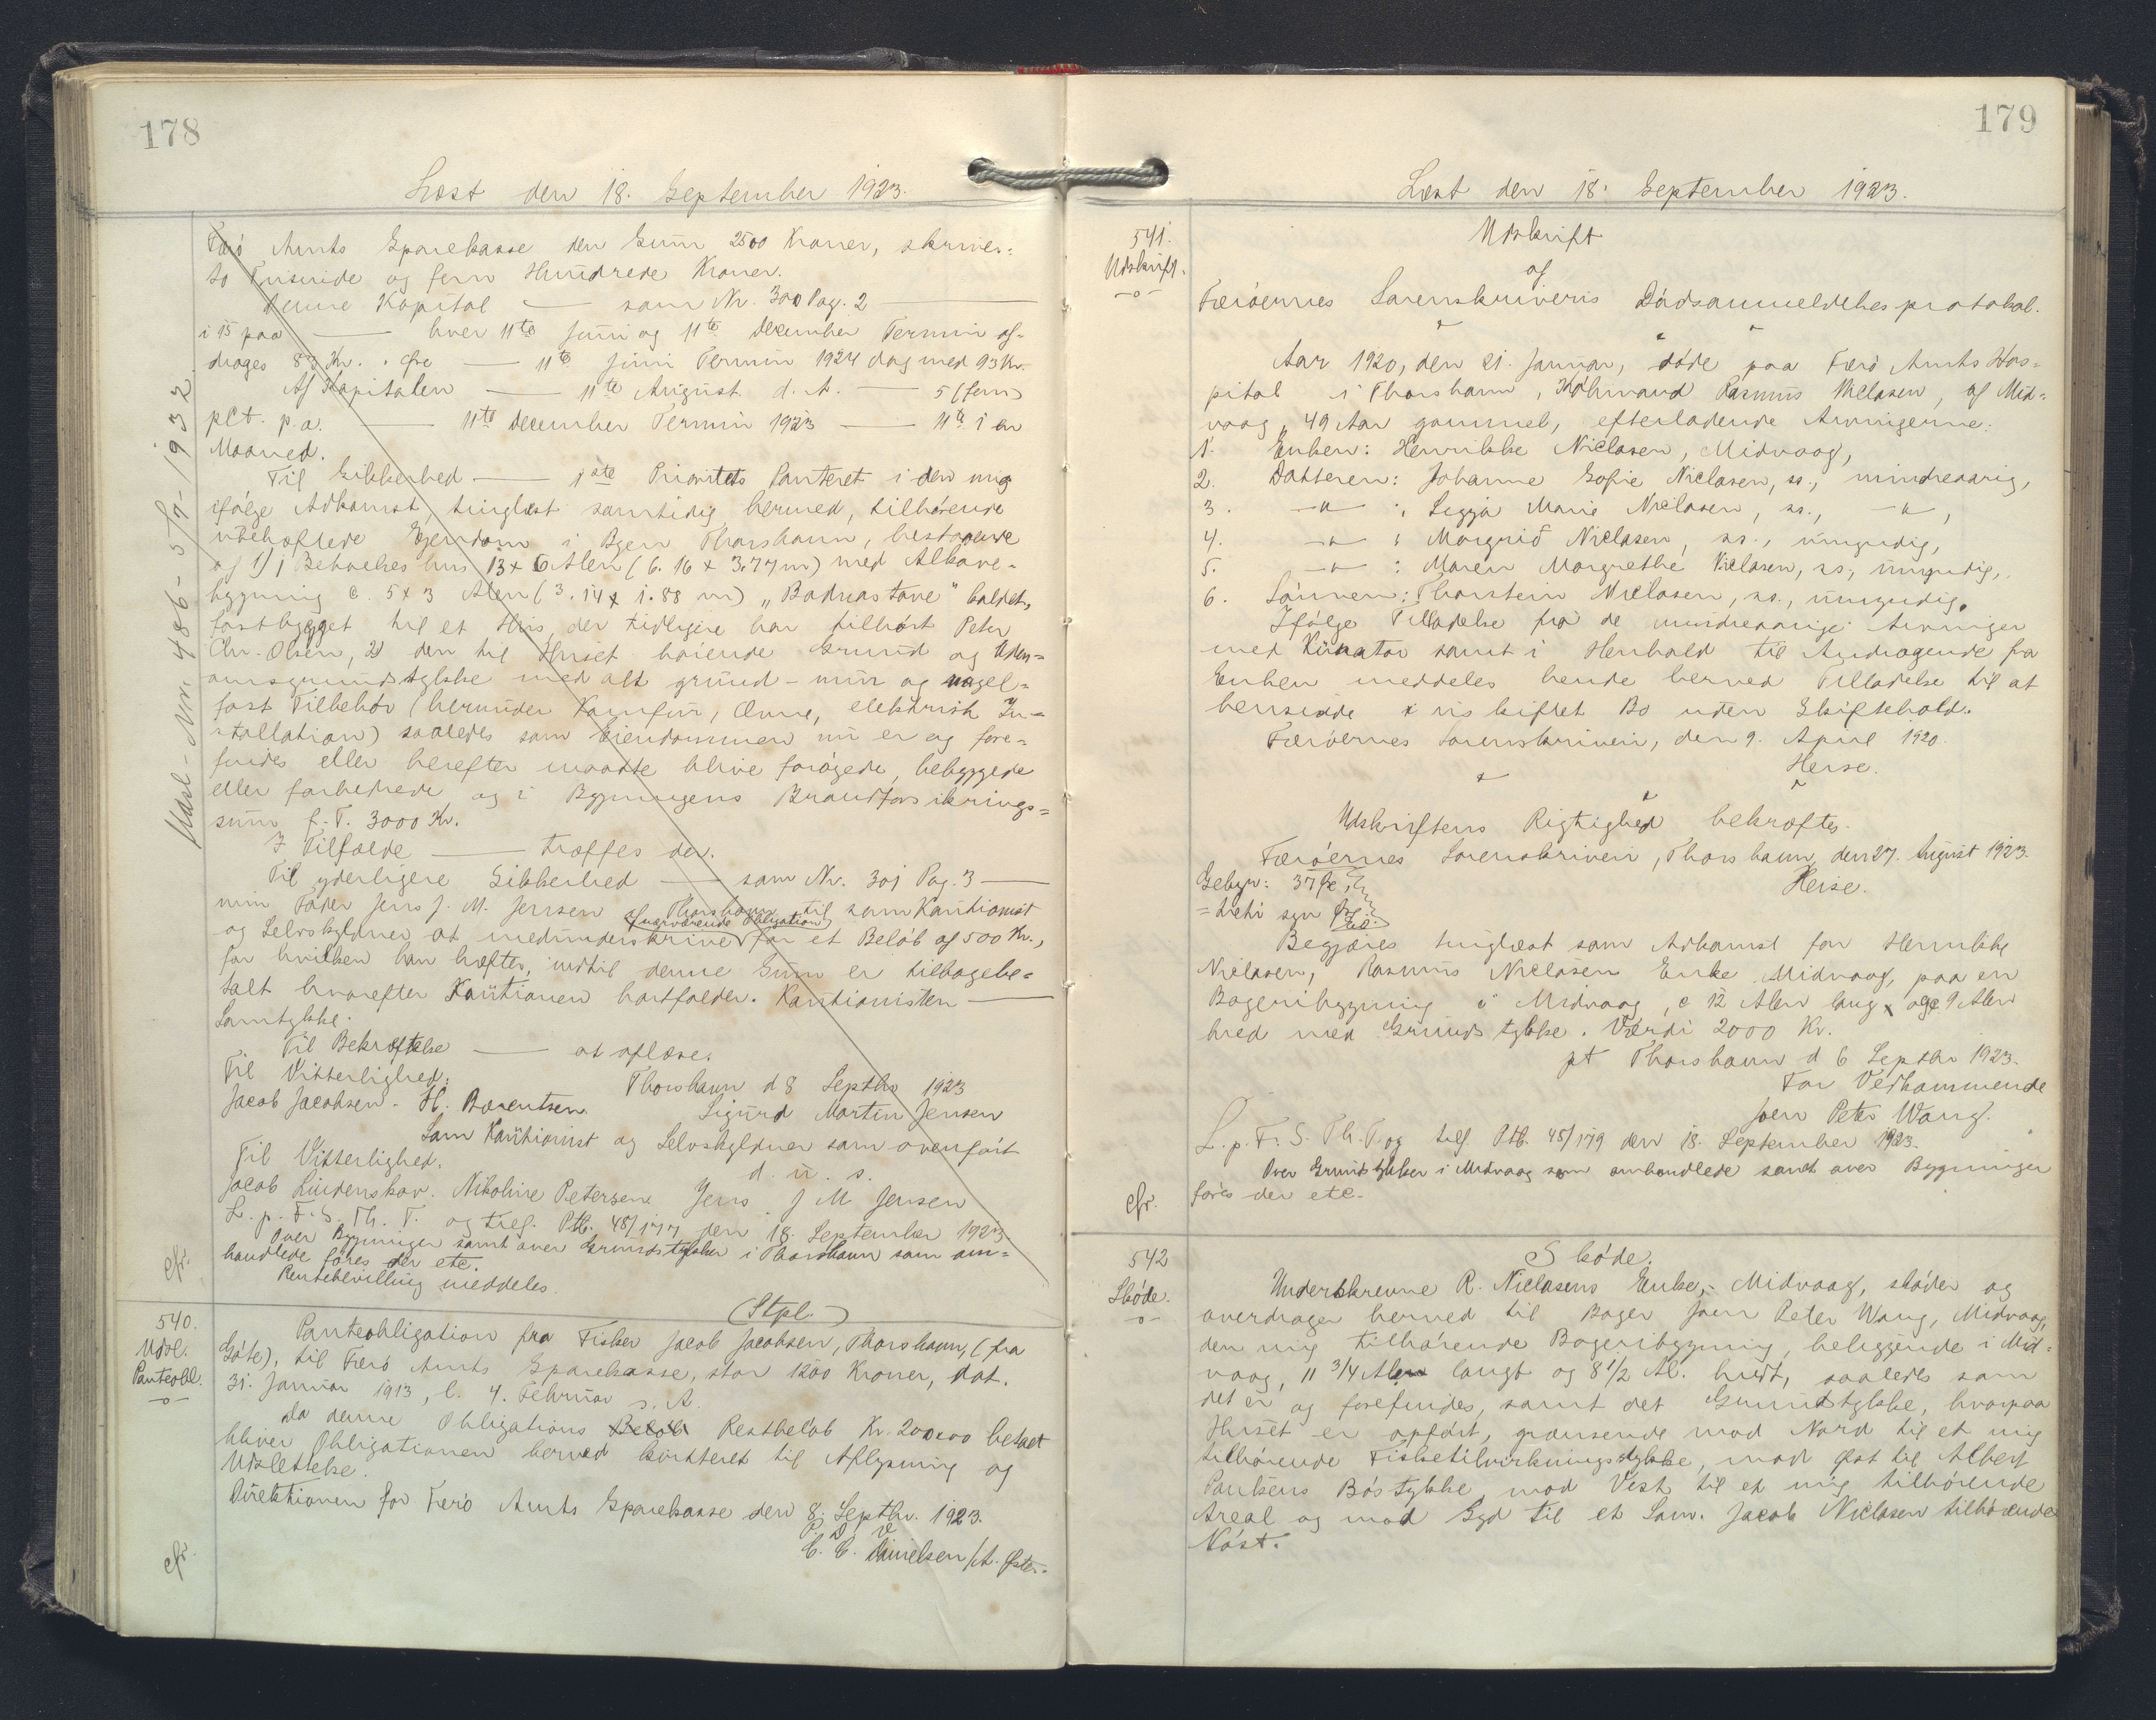 178
Læst den 18. September 1923.
Færø Amts Sparekasse den Sum 2500 Kroner, skriver:
to Tusinde og fem Hundrede Kroner.
Denne Kapital — som Nr. 300 Pag. 2 —
i 15 paa — hver 11te Juni og 11te December Termin af-
drages 83 Kr. . Øre — 11te Juni Termin 1924 dog med 93 Kr.
Af Kapitalen — 11te August d. A. — 5 (fem)
pCt. p. a. — 11te December Termin 1923 — 11te i en
Maaned.
Til Sikkerhed — 1ste Prioritets Panteret i den mig
ifølge Adkomst, tinglæst samtidig hermed, tilhørende
ubehæftede Ejendom i Byen Thorshavn, bestaaende
af 1) 1 Beboelses hus 13 x 6 Alen (6.16 x 3.77 m) med Alkove-
bygning c. 5 x 3 Alen (3.14 x 1.88 m) „Badnastove" kaldet,
fastbygget til et Hus, der tidligere har tilhørt Peter
Chr. Olsen, 2) den til Huset høiende Grund og Uden-
omsgrundstykke med alt grund- mur og nagel-
fast Tilbehør (herunder Komfur, Ovne, elektrisk In-
stallation) saaledes som Eiendommen nu er og fore-
findes eller herefter maatte blive forøgede, bebyggede
eller forbedrede og i Bygningens Brandforsikrings-
sum f. T. 3000 Kr.
I Tilfælde — træffes der.
Til yderligere Sikkerhed — som Nr. 301 Pag. 3 —
min Fader Jens J. M. Jensen af Thorshavn til som Kautionist
og Selvskyldner at medunderskrive nærværende Obligation for et Beløb af 500 Kr.,
for hvilken han hæfter, indtil denne Sum er tilbagebe-
talt hvorefter Kautionen bortfalder. Kautionisten —
Samtykke.
Til Bekræftelse — at aflæse.
Thorshavn d 8 Septbr 1923
Til Vitterlighed:
Jacob Jacobsen. H. Barentsen. Sigurd Martin Jensen
Som Kautionist og Selvskyldner som ovenført
Til Vitterlighed. d. u. s.
Jacob Lindenskov. Nikoline Petersen Jens J M Jensen
L. p. F. S. Th. T. og tilf. Ptb. 48/177 den 18. September 1923
Over Bygninger samt over Grundstykker i Thorshavn som om-
handlede føres der etc.
cfr.
Rentebevilling meddeles.
(Stpl.)
Udsl.- Nr. 486 - 5/7 - 1932.
540.
Udsl.
Panteobl.
Panteobligation fra Fisker Jacob Jacobsen, Thorshavn, (fra
Gøte), til Færø Amts Sparekasse, stor 1200 Kroner, dat.
31. Januar 1913, l. 4. Februar s. A.
Da denne Obligations Beløb Restbeløb Kr. 200.00 betalt
bliver Obligationen herved kvitteret til Aflysning og
Udslettelse.
Direktionen for Færø Amts Sparekasse den 8. Septbr. 1923.
P. D. V.
C. C. Danielsen /A.
cfr.
179
Læst den 18. September 1923.
541.
Udskrift.
Udskrift
af
Færøernes Sorenskriveris Dødsanmeldelsesprotokol.
Aar 1920, den 21. Januar, døde paa Færø Amts Hos-
pital i Thorshavn, Købmand Rasmus Niclasen, af Mid-
vaag, 49 Aar gammel, efterladende Arvingerne:
1. Enken: Henrikke Niclasen, Midvaag,
2. Datteren: Johanne Sofie Niclasen, ss., mindreaarig,
3. -"- : Seggja Marie Niclasen, ss., -"-,
4. -"- : Morgrid Niclasen, ss., umyndig,
5. -"- : Maren Margrethe Niclasen, ss., umyndig,
6. Sønnen: Thorstein Niclasen, ss., umyndig.
Ifølge Tilladelse fra de mindreaarige Arvinger
med Kurator samt i Henhold til Andragende fra
Enken meddeles hende herved Tilladelse til at
hensidde i uskiftet Bo uden Skiftehold.
Færøernes Sorenskriveri, den 9. April 1920.
Heise.
Udskriftens Rigtighed bekræftes.
Færøernes Sorenskriveri, Thorshavn den 27. August 1923.
Heise.
Gebyr: 37 Øre
= treti syv Øre
Begjæres tinglæst som Adkomst for Henrikke
Niclasen, Rasmus Niclasen Enke Midvaag, paa en
Bageribygning i Midvaag, c 12 Alen lang x og c 9 Alen
bred med Grundstykke. Værdi 2000 Kr.
pt Thorshavn d 6 Septbr 1923.
For Vedkommende
Joen Peter Wang.
L. p. F. S. Th. T. og tilf. Ptb. 48/179 den 18. September 1923.
Over Grundstykker i Midvaag som omhandlede samt over Bygninger
cfr. føres der etc.
542
Skøde.
Skøde.
Underskrevne R. Niclasens Enke, Midvaag, skøder og
overdrager herved til Bager Joen Peter Wang, Midvaag,
den mig tilhørende Bageribygning, beliggende i Mid-
vaag, 11 3/4 Alen langt og 8 1/2 Al. bredt, saaledes som
det er og forefindes, samt det Grundstykke, hvorpaa
Huset er opført, grænsende mod Nord til et mig
tilhørende Fisketilvirkningsstykke, mod Øst til Albert
Poulsens Bøstykke mod Vest til et mig tilhørende
Areal og mod Syd til et Sam. Jacob Niclasen tilhørende
Nøst.